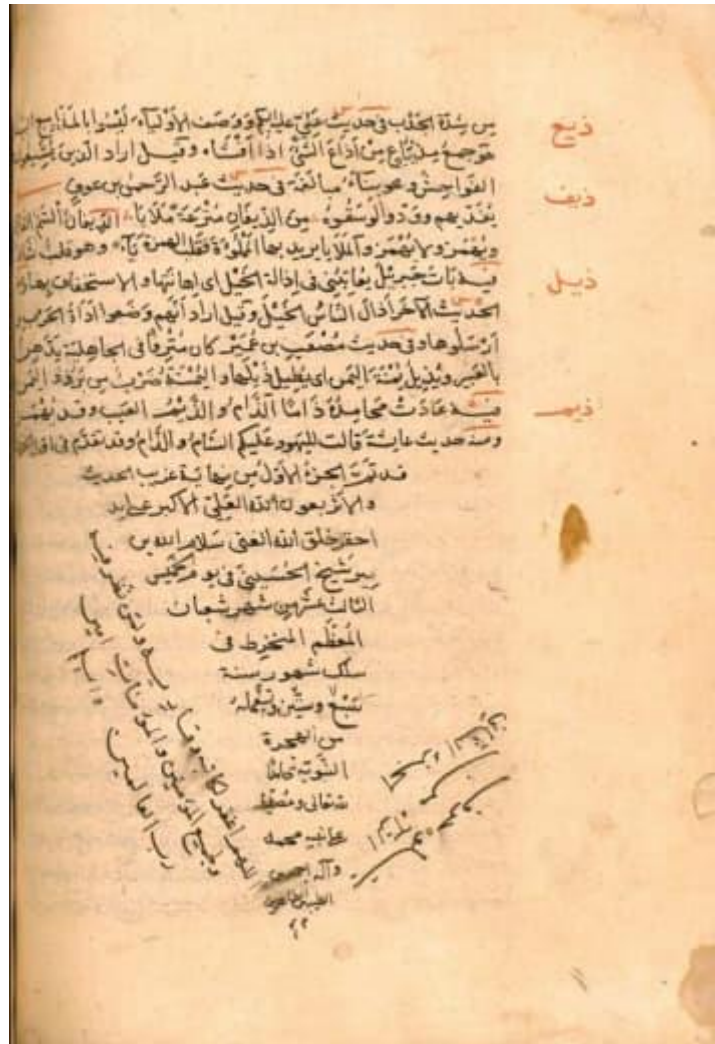 من شدة الجذب في حديث علي عليه السلام ووصف الأولياء ليسوا بالمذاييع البذر
هو جمع مذياع من أذاع الشئ اذا أفشاه وقيل اراد الذين يشيعون
الفواحش وهو بناء مبالغة في حديث عبد الرحمن بن عوف
يفديهم وودوا لو سقوه من الذيفان مترعة ملايا الذيفان السم القاتل
ويهمز ولا يهمز والملايا يريد بها المملوءة فقلب الهمزة ياء وهو قلب شاذ
فيه بات جبريل يعاتبني في إذالة الخيل اى اهانتها والاستخفاف بها ومنه
الحديث الآخر أذال الناس الخيل وقيل اراد أنهم وضعوا اداة الحرب عنها
أرسلوها وفي حديث مصعب بن عمير كان مترفا في الجاهلية يدهن
بالعبير ويذيل يمنة اليمن اى يطيل ذيلها واليمنة ضرب من برود اليمن
فيه عادت محامده ذاما الذام والذيم العيب وقد يهمز
ومنه حديث عايشة قالت لليهود عليكم السام والذام وقد تقدم في اول
ذيع
ذيف
ذيل
ذيم
قد تمت الجزء الاول من نهاية غريب الحديث
والاثر بعون الله العلي الاكبر على يد
احقر خلق الله الغني سلام الله بن
مير شيخ الحسيني في يوم خميس
الثالث عشر من شهر شعبان
المعظم المنخرط في
سلك شهور سنة
تسع وستين وتسعمائة
من الهجرة
النبوية
لله تعالى ومصليا
على نبيه محمد
وآله اجمعين
الطيبين الطاهرين
اللهم اغفر لكاتبه وقاريه ولمن نظر فيه
ولجميع المؤمنين والمؤمنات امين
رب العالمين
الجزء الثاني